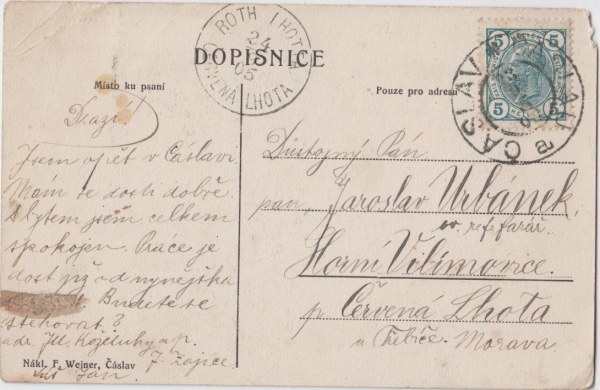 ROTH LHOTA
24
05
ČERWENÁ LHOTA
DOPISNICE
5 5
5 5
ČÁSLAV
ČASLAU
Místo ku psaní
Pouze pro adresu
Drazí!
Jsem opět v Čáslavi.
Mám se dosti dobře.
S bytem jsem celkem
spokojen. Práce je
dost již od nynějška
Budete se
stěhovat?
adr. Jll Koželuhy n p.
J. Zajíce
Váš Jan.
Nákl. F. Wejner, Čáslav
Důstojný Pán
pan, Jaroslav Urbánek,
ev. ref. farář.
Horní Vilímovice.
p. Červená Lhota
u Třebíče. Morava.